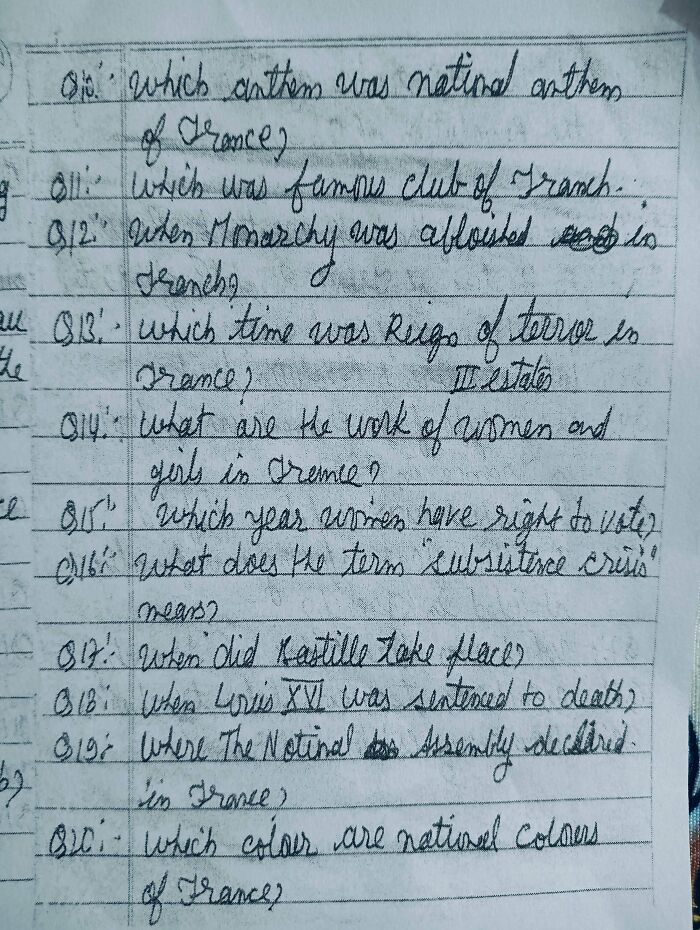 Q10:- Which anthem was national anthem
of France?
g
Q11:- Which was famous club of Franch.
Q12:- When Monarchy was abloished in
Franch?
au
Q13:- Which time was Reign of terror in
the
France? III estates
Q14:- What are the work of women and
girls in France?
ce
Q15:- Which year women have right to vote?
Q16:- What does the term "subsistence crisis"
means?
Q17:- When did Bastille take place?
Q18: When Louis XVI was sentenced to death?
Q19:- Where The Notinal Assembly declared.
in France?
Q20:- Which colour are national colours
of France?